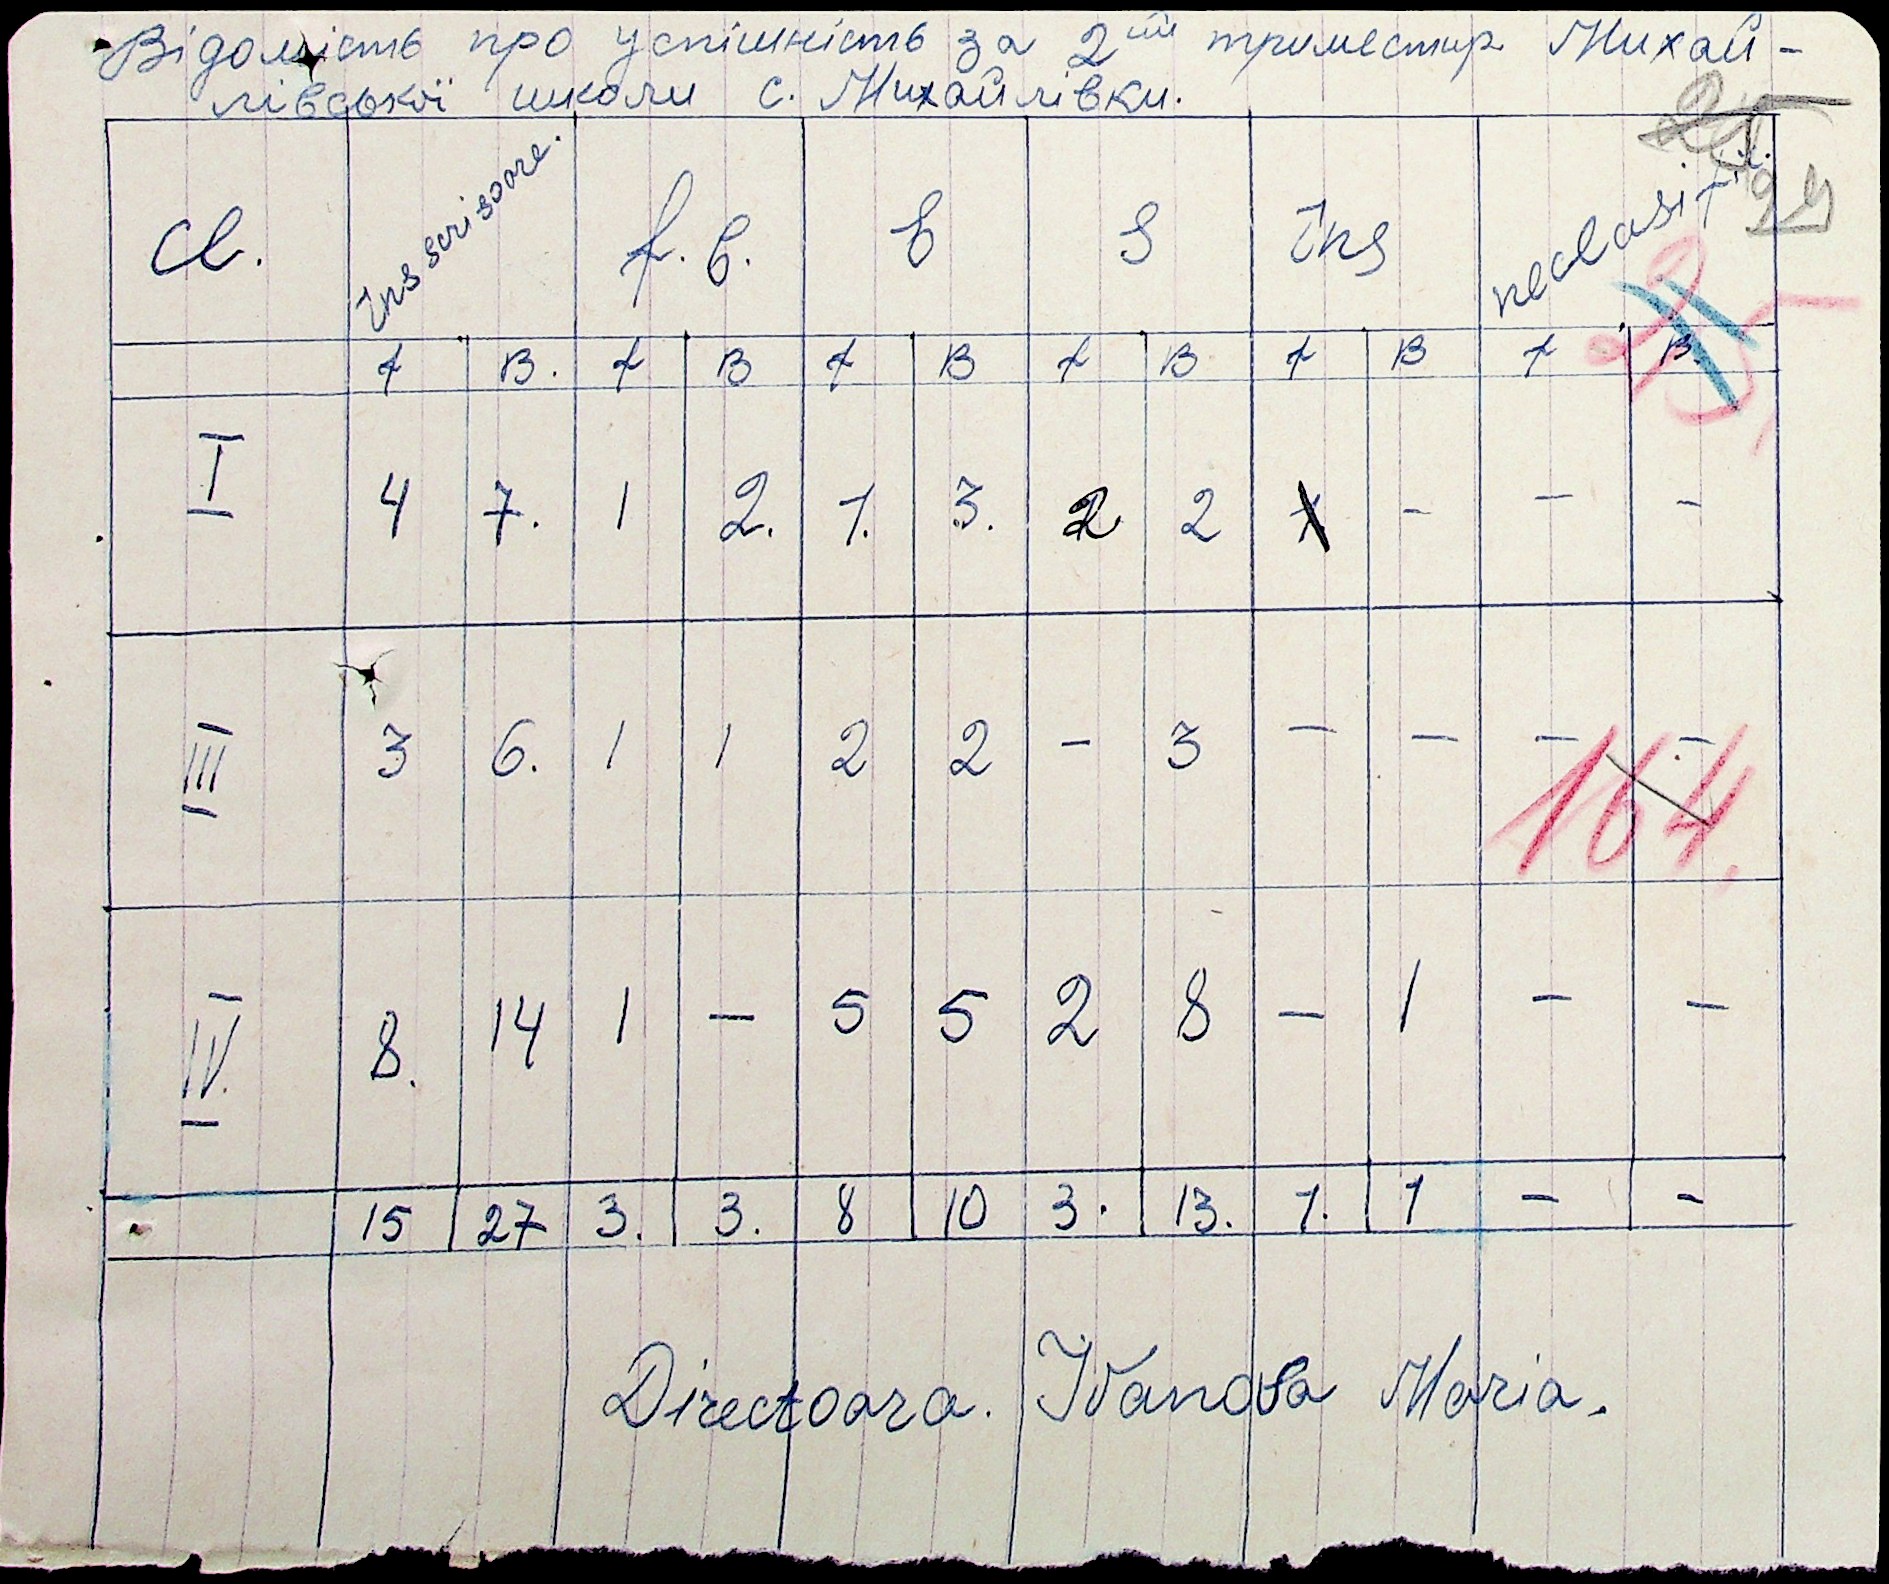 Відомість про успішність за 2ий триместр Михай-
лівської школи с. Михайлівки.
Cl. Însscrisoare. f. b. b S Îns neclasiți.
f B. f B f B f B f B f B
I 4 7. 1 2. 1. 3. 2 2 1 - - -
III 3 6. 1 1 2 2 - 3 - - - -
164.
IV. 8. 14 1 - 5 5 2 8 - 1 - -
15 27 3. 3. 8 10 3. 13. 1. 1 - -
Directoara. Ivanova Maria.